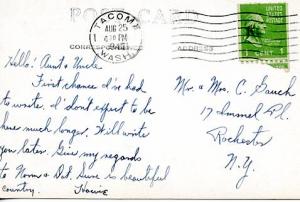 POST CARD
TACOMA
AUG 25
WASH.
CORRES
ADDRESS
CENT
Hello! Aunt & Uncle
First chance I've had
to write. I don't expect to be
here much longer. Will write
you later. Give my regards
to Norm & Dot. Sure is beautiful
country. Howie
Mr. & Mrs. C. Gauch
17 Immel Pl.
Rochester
N.Y.